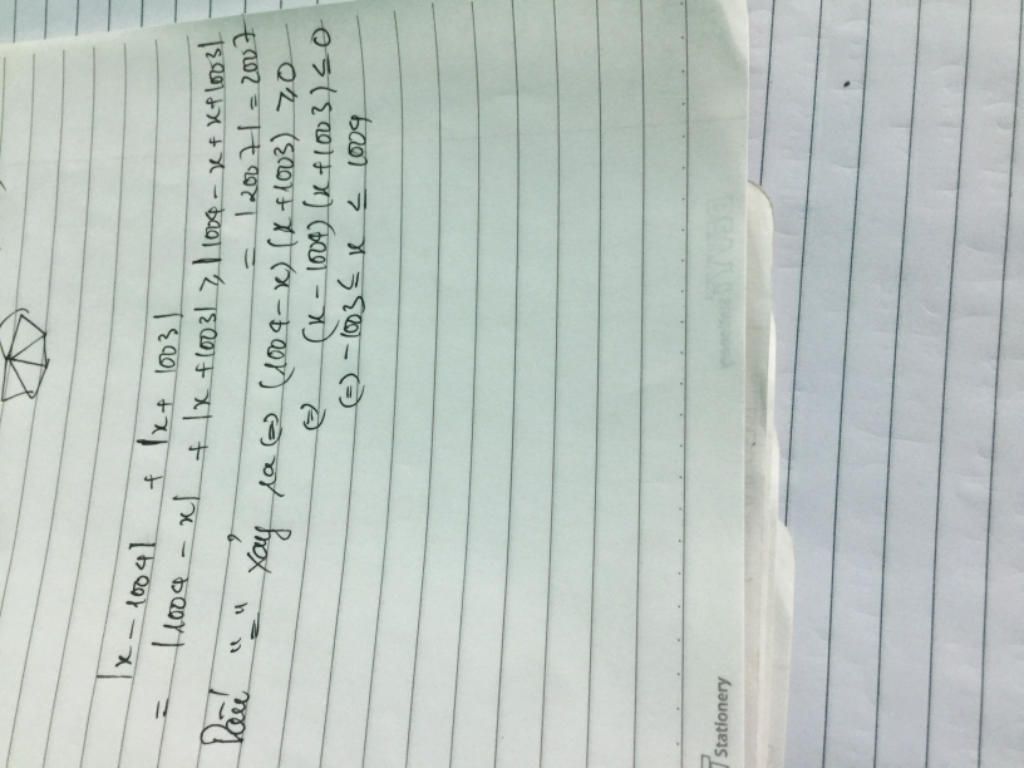 |x - 1004| + |x + 1003|
= |1004 - x| + |x + 1003| ≥ |1004 - x + x + 1003|
= |2007| = 2007
Dấu "=" xảy ra (=) (1004 - x) (x + 1003) ≥ 0
(=) (x - 1004) (x + 1003) ≤ 0
(=) - 1003 ≤ x ≤ 1004
Stationery